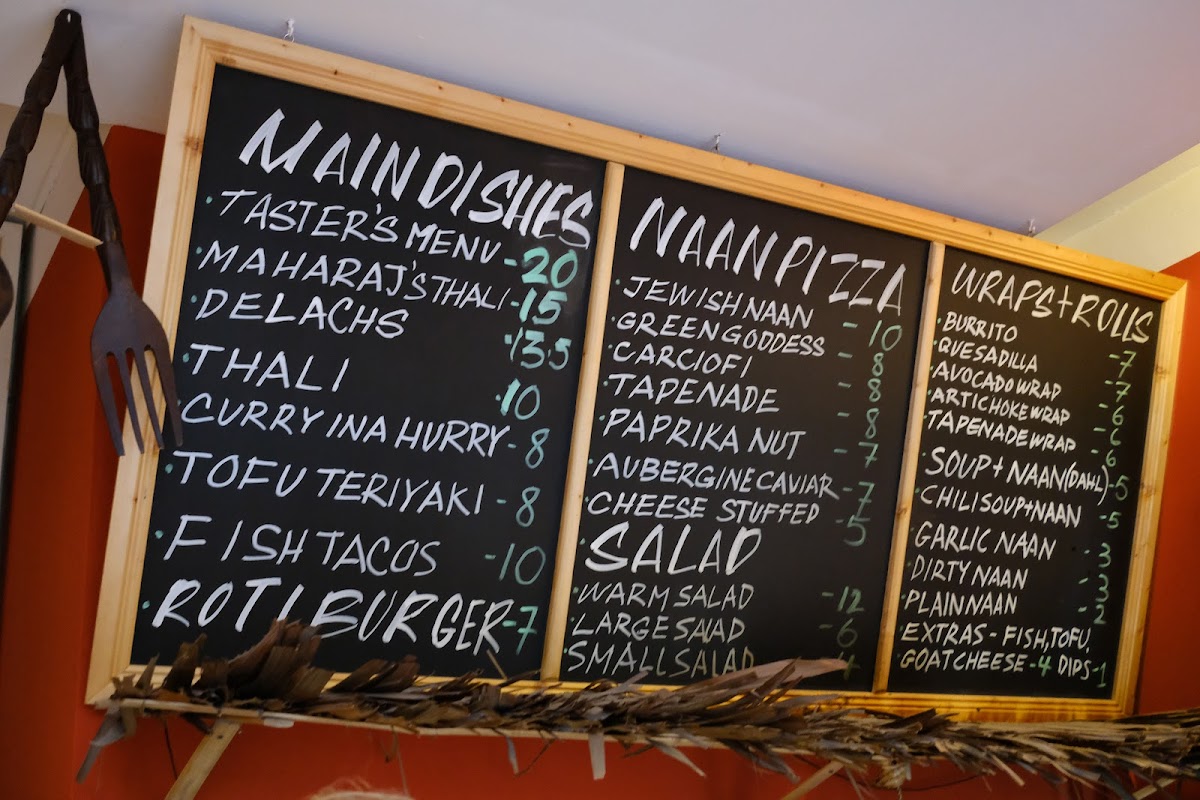 MAIN DISHES
TASTER'S MENU -20
MAHARAJ'S THALI -15
DELACHS 13.5
THALI 10
CURRY IN A HURRY -8
TOFU TERIYAKI -8
FISH TACOS -10
ROTI BURGER -7
NAAN PIZZA
JEWISH NAAN -10
GREEN GODDESS -8
CARCIOFI -8
TAPENADE -8
PAPRIKA NUT -7
AUBERGINE CAVIAR -7
CHEESE STUFFED -5
SALAD
WARM SALAD -12
LARGE SALAD -6
SMALL SALAD 4
WRAPS + ROLLS
BURRITO -7
QUESADILLA -7
AVOCADO WRAP -6
ARTICHOKE WRAP -6
TAPENADE WRAP -6
SOUP + NAAN (DAHL) -5
CHILI SOUP + NAAN -5
GARLIC NAAN -3
DIRTY NAAN -3
PLAIN NAAN -2
EXTRAS - FISH, TOFU,
GOAT CHEESE -4 DIPS -1